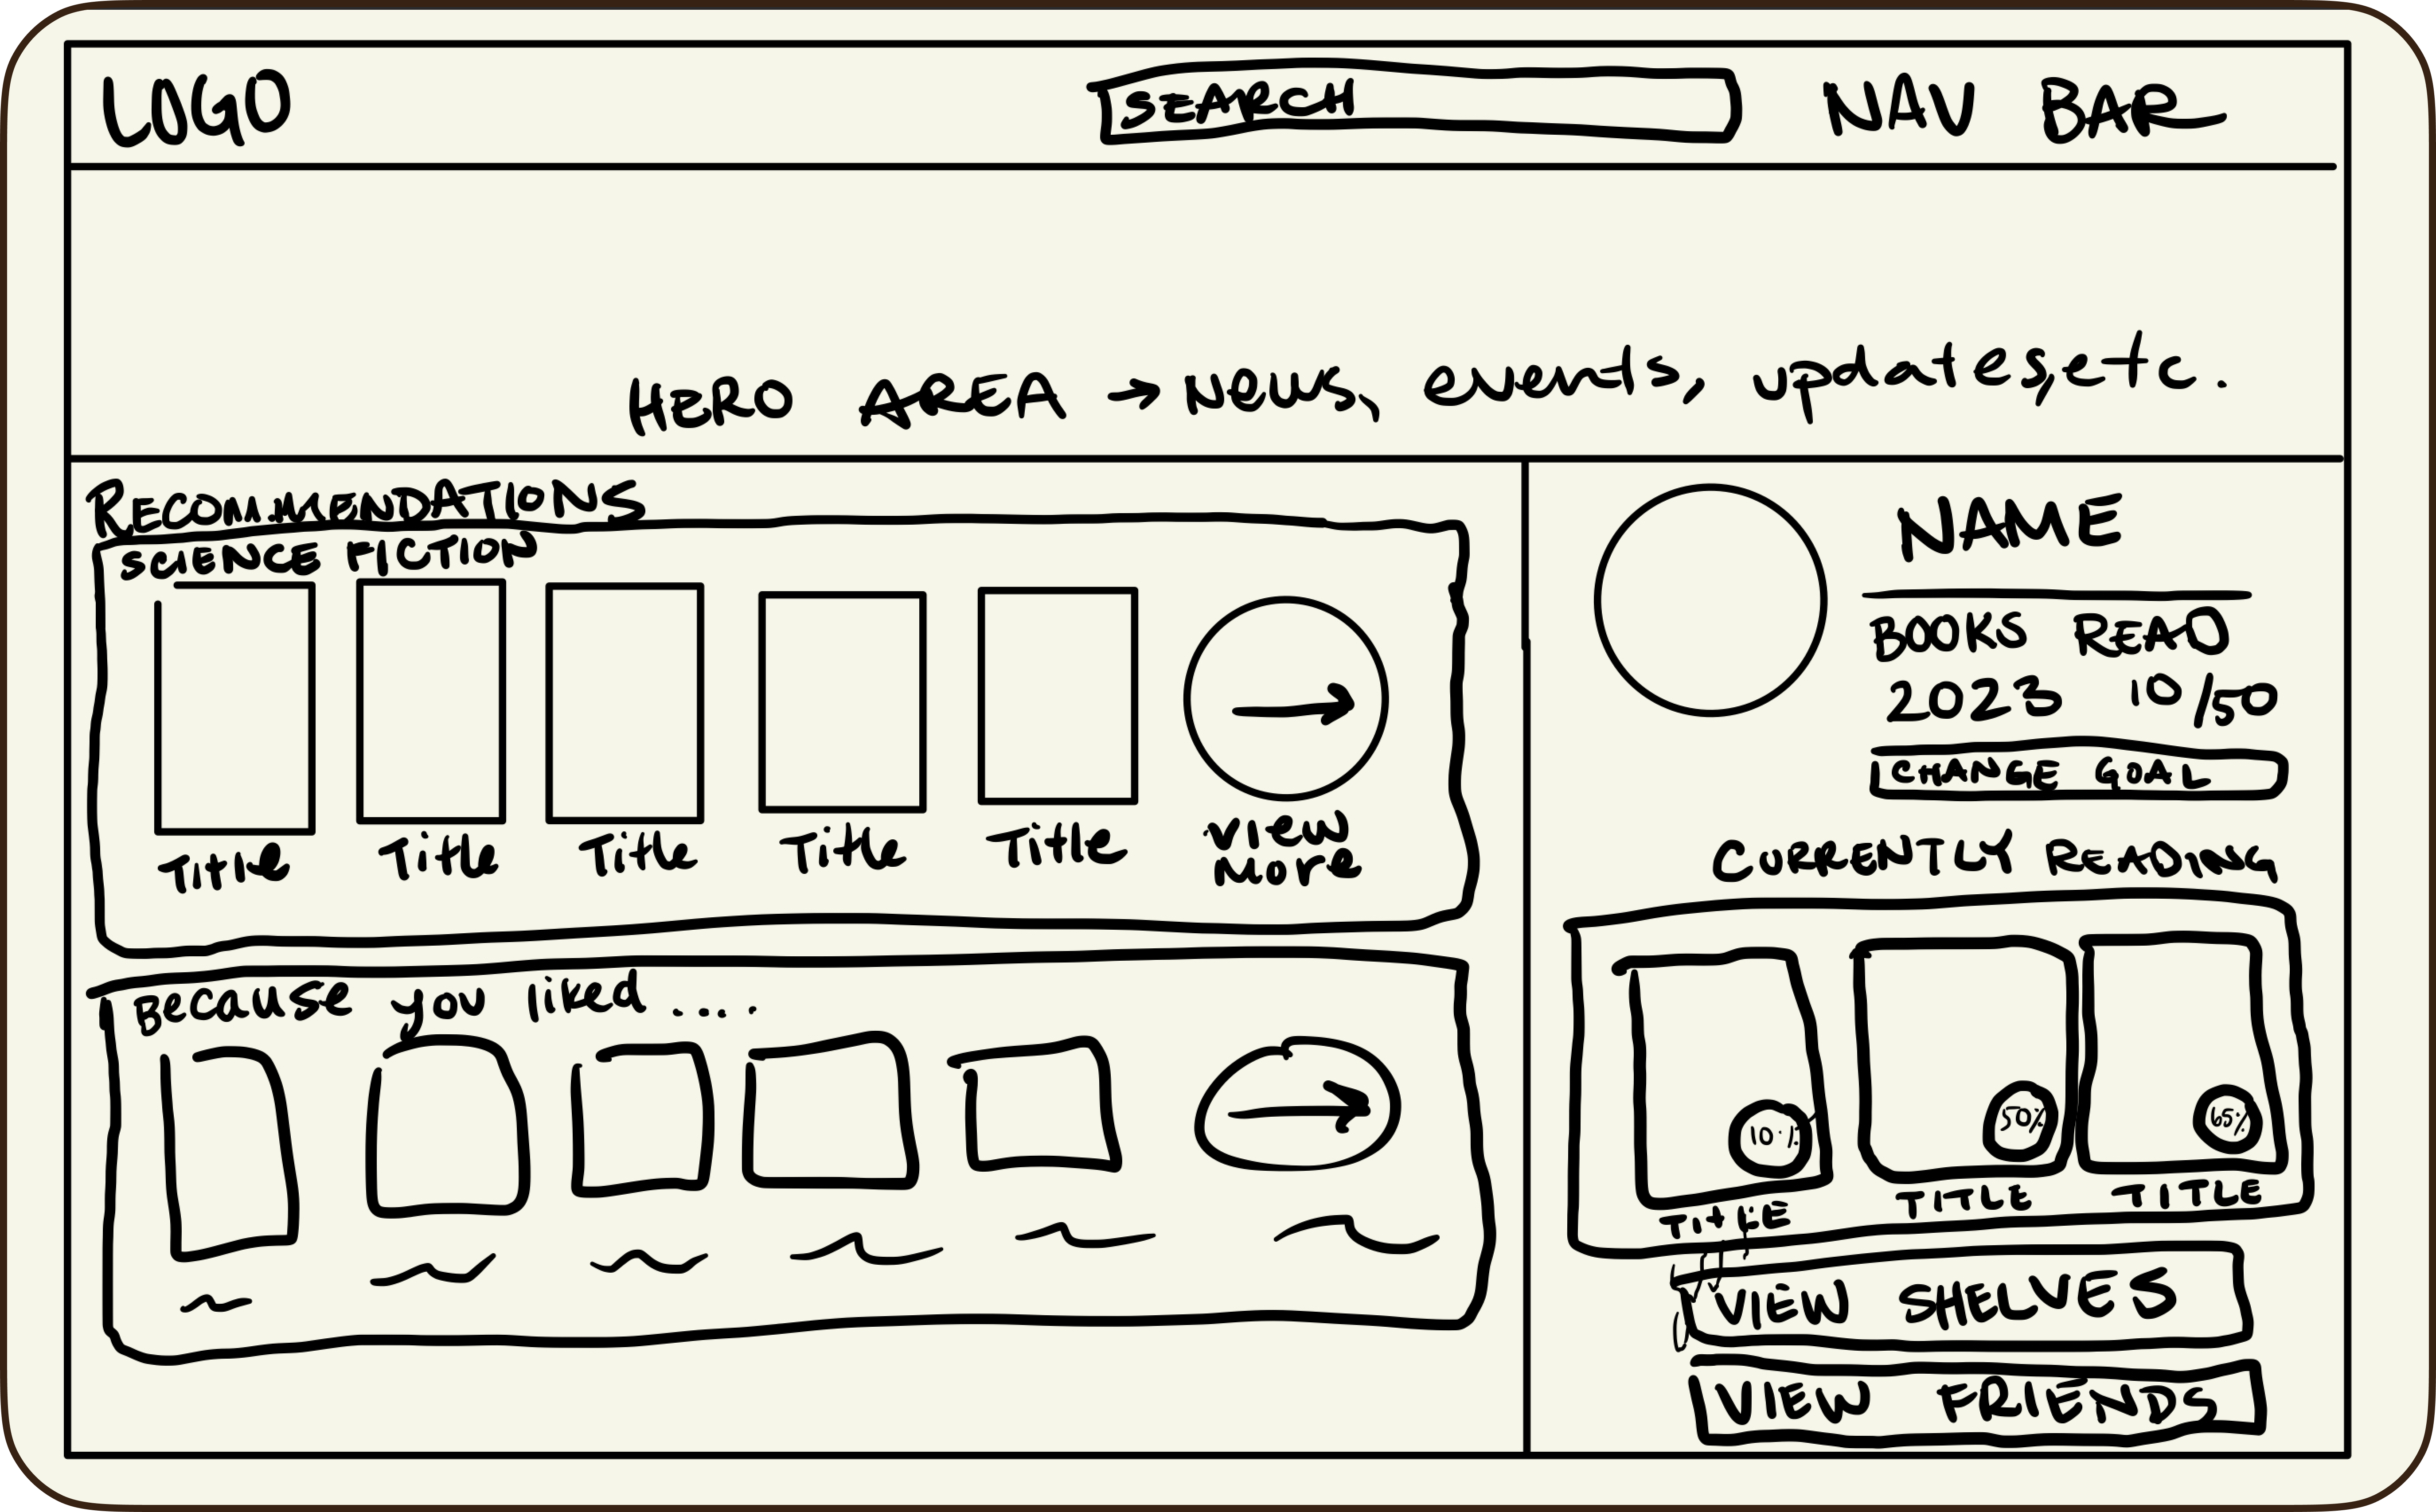 LOGO
SEARCH
NAV BAR
HERO AREA → News, events, updates, etc.
RECOMMENDATIONS
SCIENCE FICTION
Title
Title
Title
Title
Title
View
More
Because you liked ....
NAME
BOOKS READ
2023 10/50
CHANGE GOAL
CURRENTLY READING
10%
50%
65%
TITLE
TITLE
TITLE
VIEW SHELVES
VIEW FRIENDS